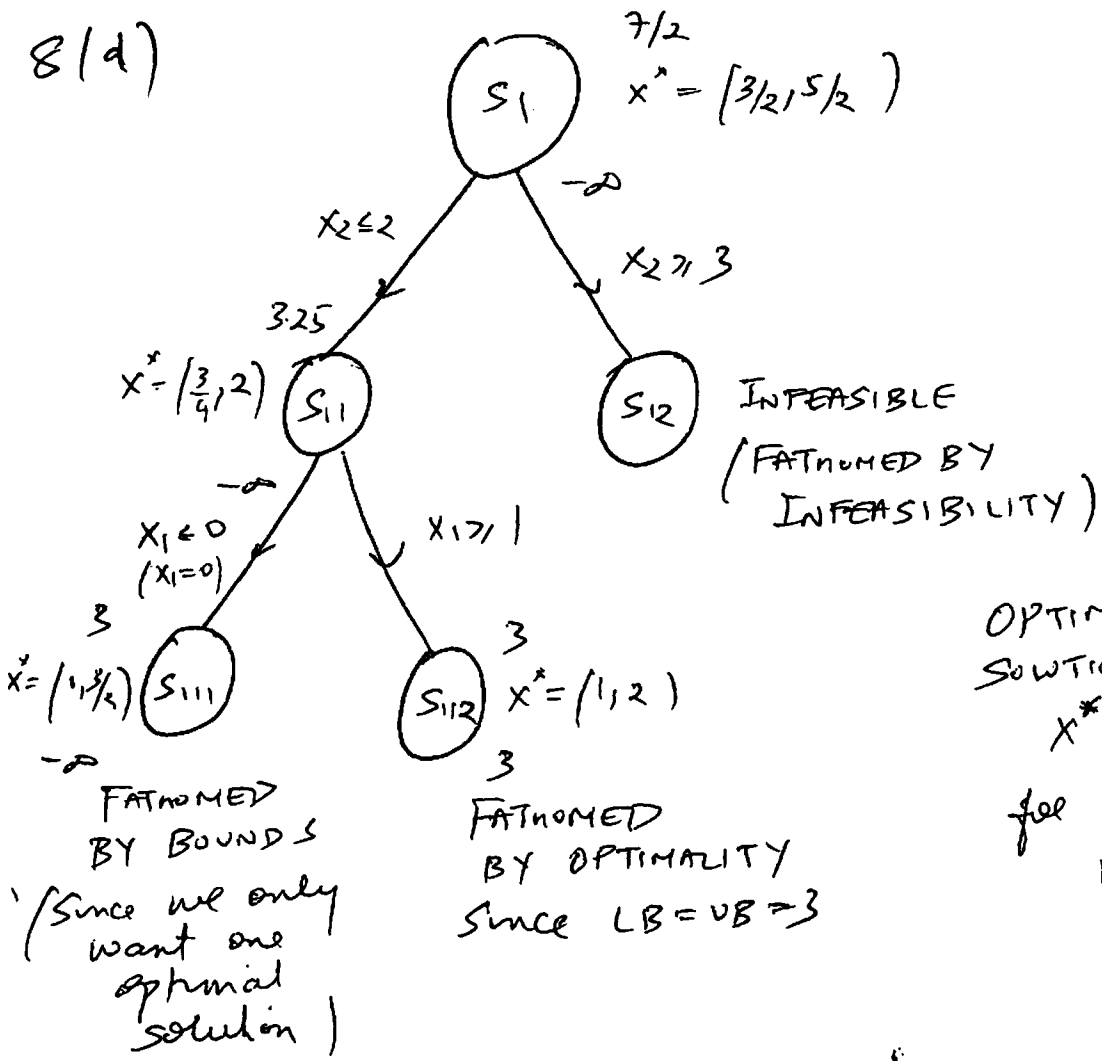 8(d)
7/2
S1
x* = (3/2, 5/2)
-∞
x2 ≤ 2
x2 ≥ 3
3.25
x* = (3/4, 2)
S11
S12
INFEASIBLE
(FATHOMED BY
INFEASIBILITY)
-∞
x1 ≤ 0
(x1=0)
x1 ≥ 1
3
x* = (1, 3/2)
S111
-∞
3
S112
x* = (1, 2)
3
FATHOMED
BY BOUNDS
(Since we only
want one
optimal
solution)
FATHOMED
BY OPTIMALITY
Since LB = UB = 3
OPTIM
SOLUTIO
x*